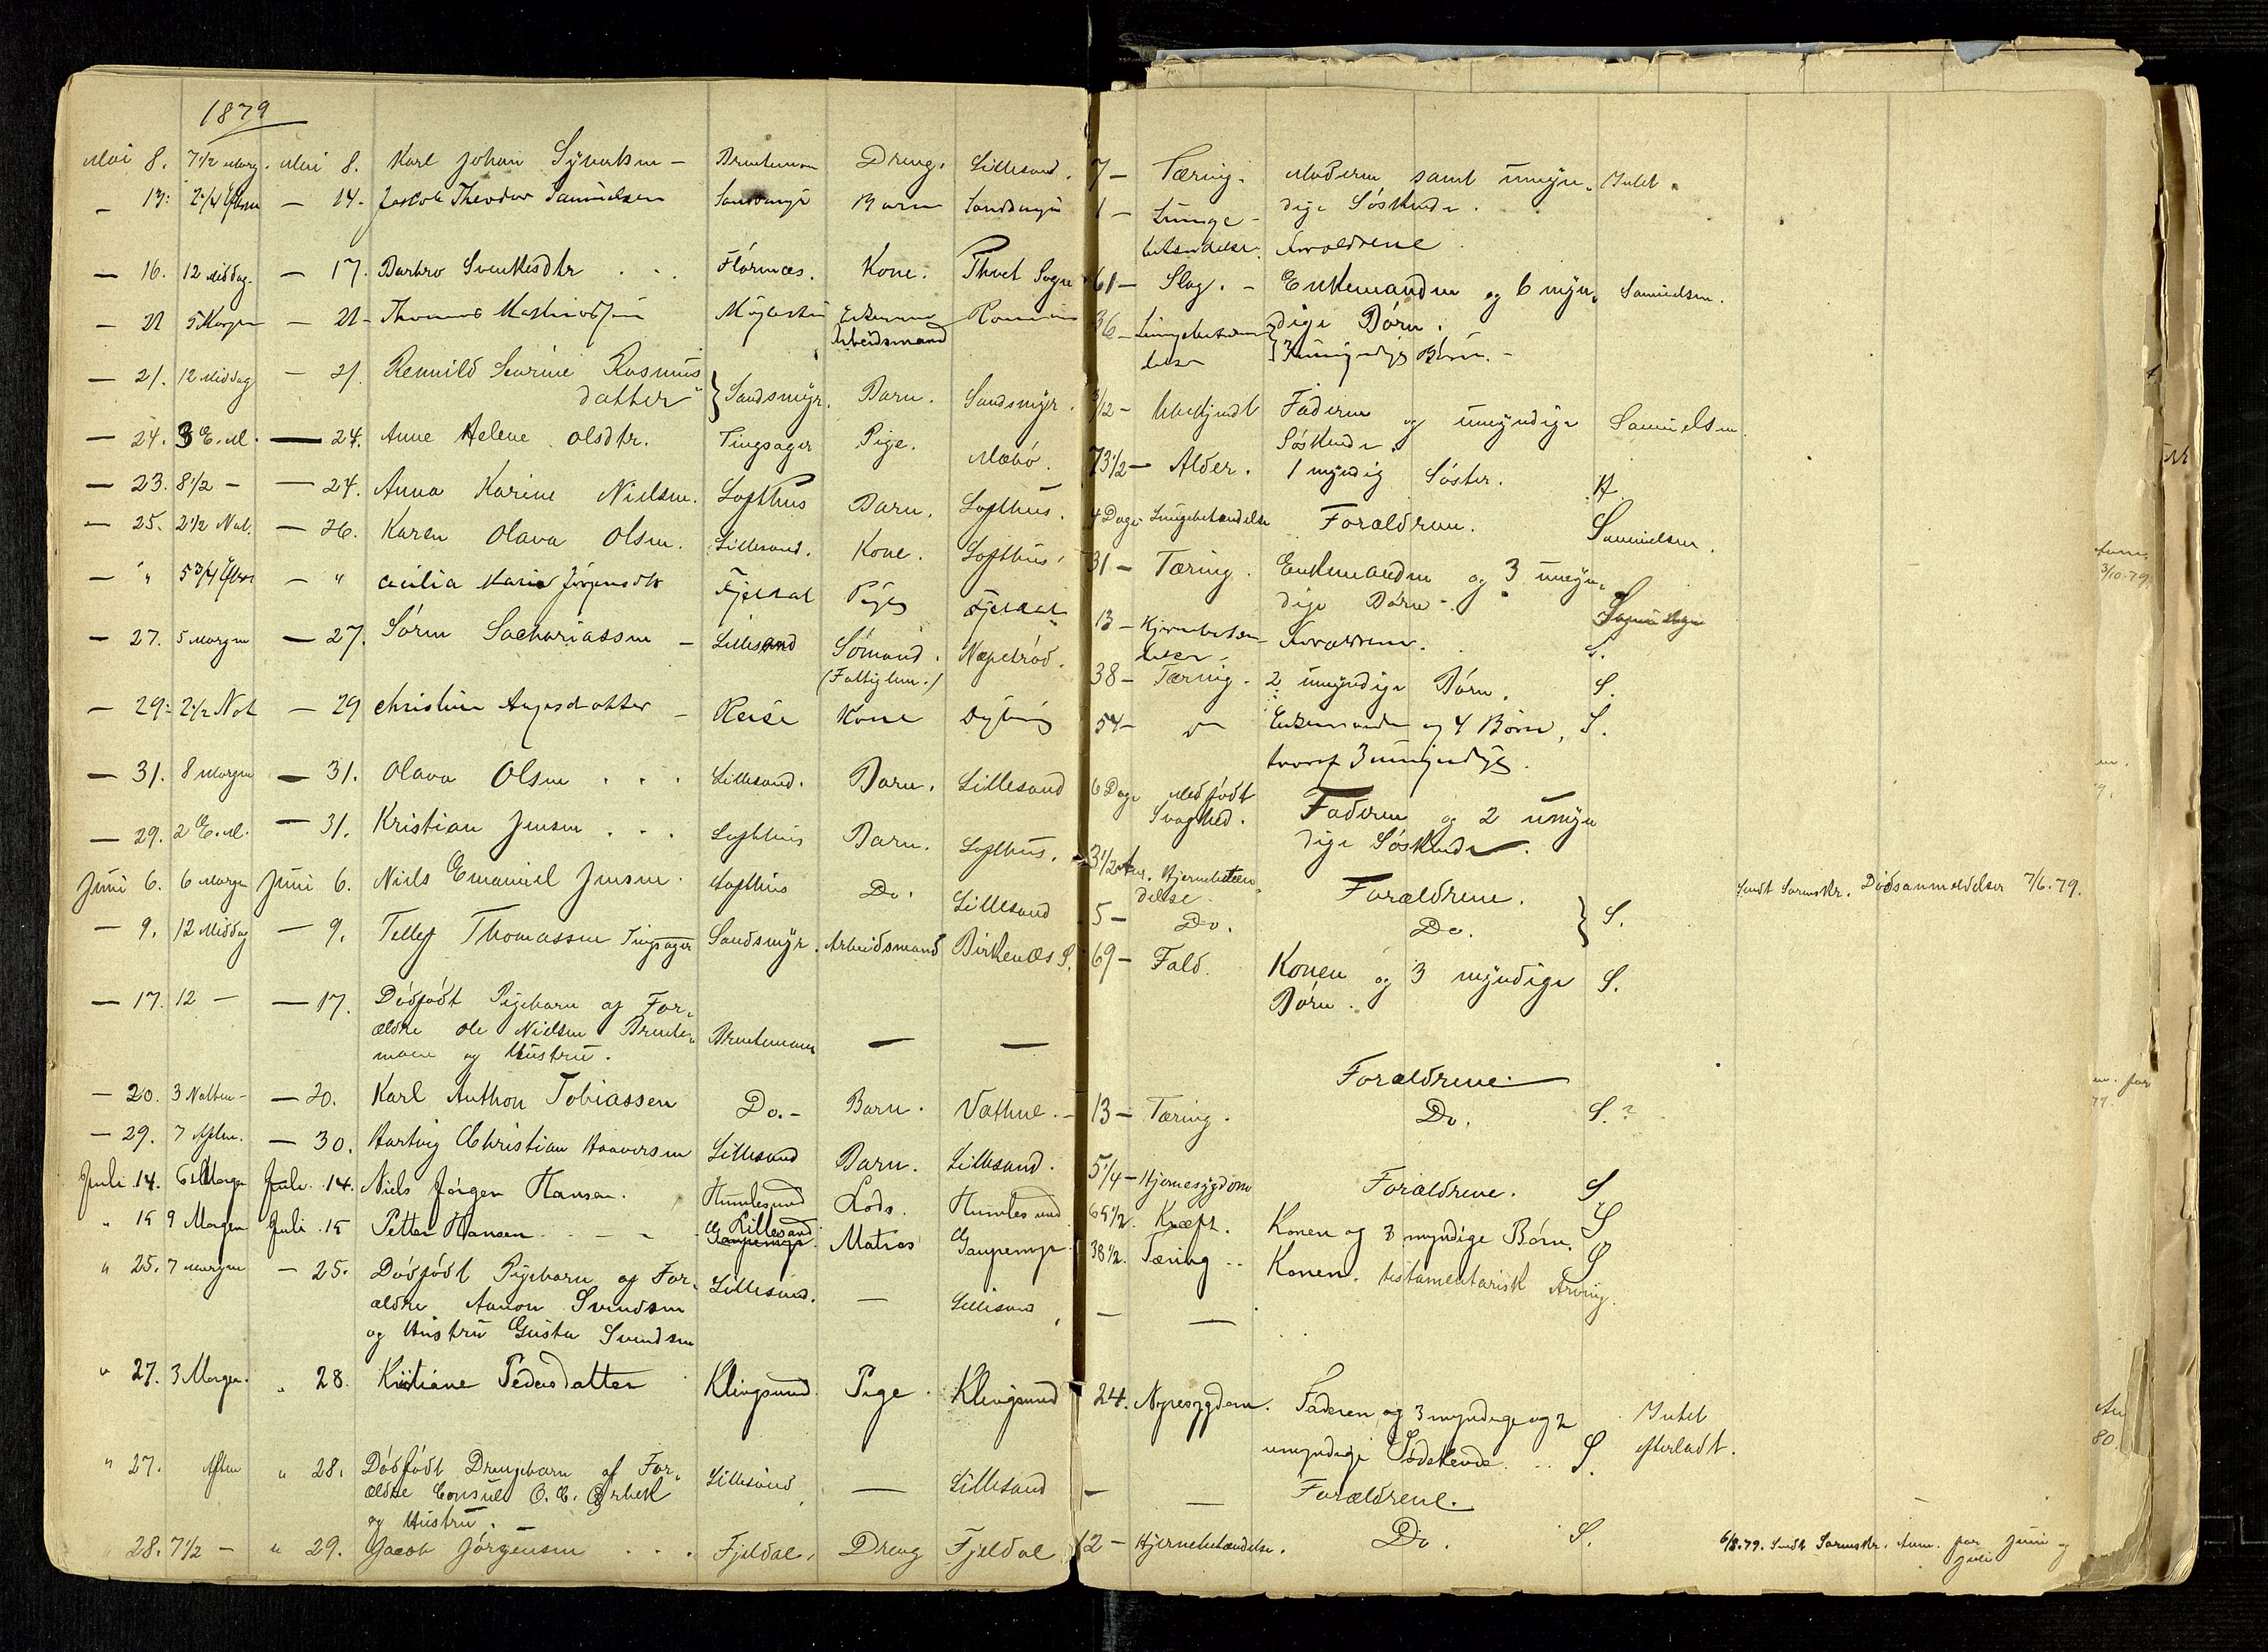 1879
Mai 8. 7 1/2 Morg. Mai 8. Karl Johan Syvertsen – Brentemoen Dreng. Lillesand. 7 – Tæring. Moderen samt umyn- Intet.
dige Søskende.
– 13. 2 1/4 Efterm – 14. Jacob Theodor Samuelsen Sandsmyr Barn Sandsmyr 1 – Lunge-
betændelse. Forældrene
– 16. 12 Middag – 17. Barbro Svenkesdtr . . . Flørnæs. Kone. Thvet Sogn 61 – Slag. – Enkemanden og 6 myn- Samuelsen.
dige Børn.
– 21 5 Morgen – 21 – Thomas Enkemand 36 – Lungebetæn-
Arbeidsmand delse 3 umyndige Børn. –
– 21. 12 Middag – 21. Severine Rasmus
datter Sandsmyr. Barn. Sandsmyr. Ubekjendt Faderen og umyndige Samuelsen
Søskende.
– 24. 3 E.M. – 24. Anne Helene Olsdtr. Tingsager Pige. Mæbø. 73 1/2 – Alder. 1 myndig Søster.
– 23. 8 1/2 – – 24. Anna Karine Nielsen. Lofthus Barn. Lofthus. 4 Dage. Lungebetændelse Forældrene. Samuelsen.
– 25. 2 1/2 Nat. – 26. Karen Olava Olsen. Lillesand. Kone. Lofthus. 31 – Tæring. Enkemanden og 3 umyn-
dige Børn –. Samuelsen
– " 5 3/4 Efterm – " Cicilia Marie Jørgensdtr Fjeldal Pige Fjeldal 13 – Hjernebetæn-
delse. Forældrene. S.
– 27. 5 Morgen – 27. Søren Sachariassen – Lillesand Sømand. Næpetrød. 38 – Tæring. 2 umyndige Børn. S.
(Fattiglem.)
– 29. 2 1/2 Nat – 29 Christine – Reise Kone Dybvig 54 – do Enkemanden og 4 Børn, S.
hvoraf 3 umyndige.
– 31. 8 Morgen – 31. Olava Olsen . . . Lillesand. Barn. Lillesand 6 Dage Medfødt Faderen og 2 umyn
Svaghed. dige Søskende.
– 29. 2 E.M. – 31. Kristian Jensen . . . Lofthus Barn. Lofthus. 3 1/2 Hjernebetæn-
delse. Forældrene. Sendt Sorenskr. Dødsanmeldelser 7/6.79.
Juni 6. 6 Morgen Juni 6. Niels Emanuel Jensen. Lofthus Do. Lillesand 5 – Do. Do. S.
– 9. 12 Middag – 9. Tellef Thomassen Tingsager Sandsmyr. Arbeidsmand Birkenæs S. 69 – Fald. Konen og 3 myndige S.
Børn.
– 17. 12 – – 17. Dødfødt Pigebarn af For-
ældre Ole Nielsen Brente-
moen og Hustru. Brentemoen — — Forældrene
– 20. 3 Natten – – 20. Karl Anthon Tobiassen Do. – Barn. Vathne. – 13 – Tæring. Do. S.?
– 29. 7 Aften. – 30. Hartvig Christian Haaversen Lillesand Barn. Lillesand. 5 1/4 – Hjernesygdom Forældrene. S
Juli 14. 6 Morgen Juli. 14. Niels Jørgen Hansen. Humlesund Lods. Humlesund 65 1/2. Kræft. Konen og 3 myndige Børn. S
" 15 9 Morgen Juli. 15 Petter Hansen . – – – Lillesand
Gaupemyr Matros Gaupemyr 38 1/2. Tæring .. Konen. testamentarisk Arving. S
" 25. 7 Morgen – 25. Dødfødt Pigebarn af For-
ældre Aanon Svendsen
og Hustru Gusta Svendsen Lillesand. — Lillesand — —
" 27. 3 Morgen. " 28. Kristiane Pedersdatter Klingsund. Pige. Klingsund 24. Nyresygdom. Faderen og 3 myndige og 2 Intet
umyndige Sødskende. .. S. efterladt.
" 27. Aften " 28. Dødfødt Drengebarn af For-
ældre Consul O. C. Ørbek
og Hustru. Lillesand — Lillesand — — Forældrene.
" 28. 7 1/2 – " 29. Jacob Jørgensen . . . Fjeldal. Dreng Fjeldal 12 – Hjernebetændelse. Do. S. 6/8.79. Sendt Sorenskr. Anm. for Juni og
Juli